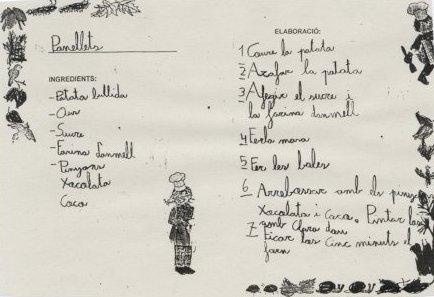 Panellets
INGREDIENTS:
-Patata bullida
-Ous
-Sucre
-Farina d'anmell
-Pinyons
Xacolata
Coco
ELABORACIÓ:
1 Coure la patata
2 Axafar la patata
3 Afegir el sucre i
la farina danmell
4 Ferla masa
5 Fer les boles
6 Arrebossar amb els pinyo
Xacolata i Coco. Pintar las
amb Clara dou
7 Ficar las Cinc minuts el
forn